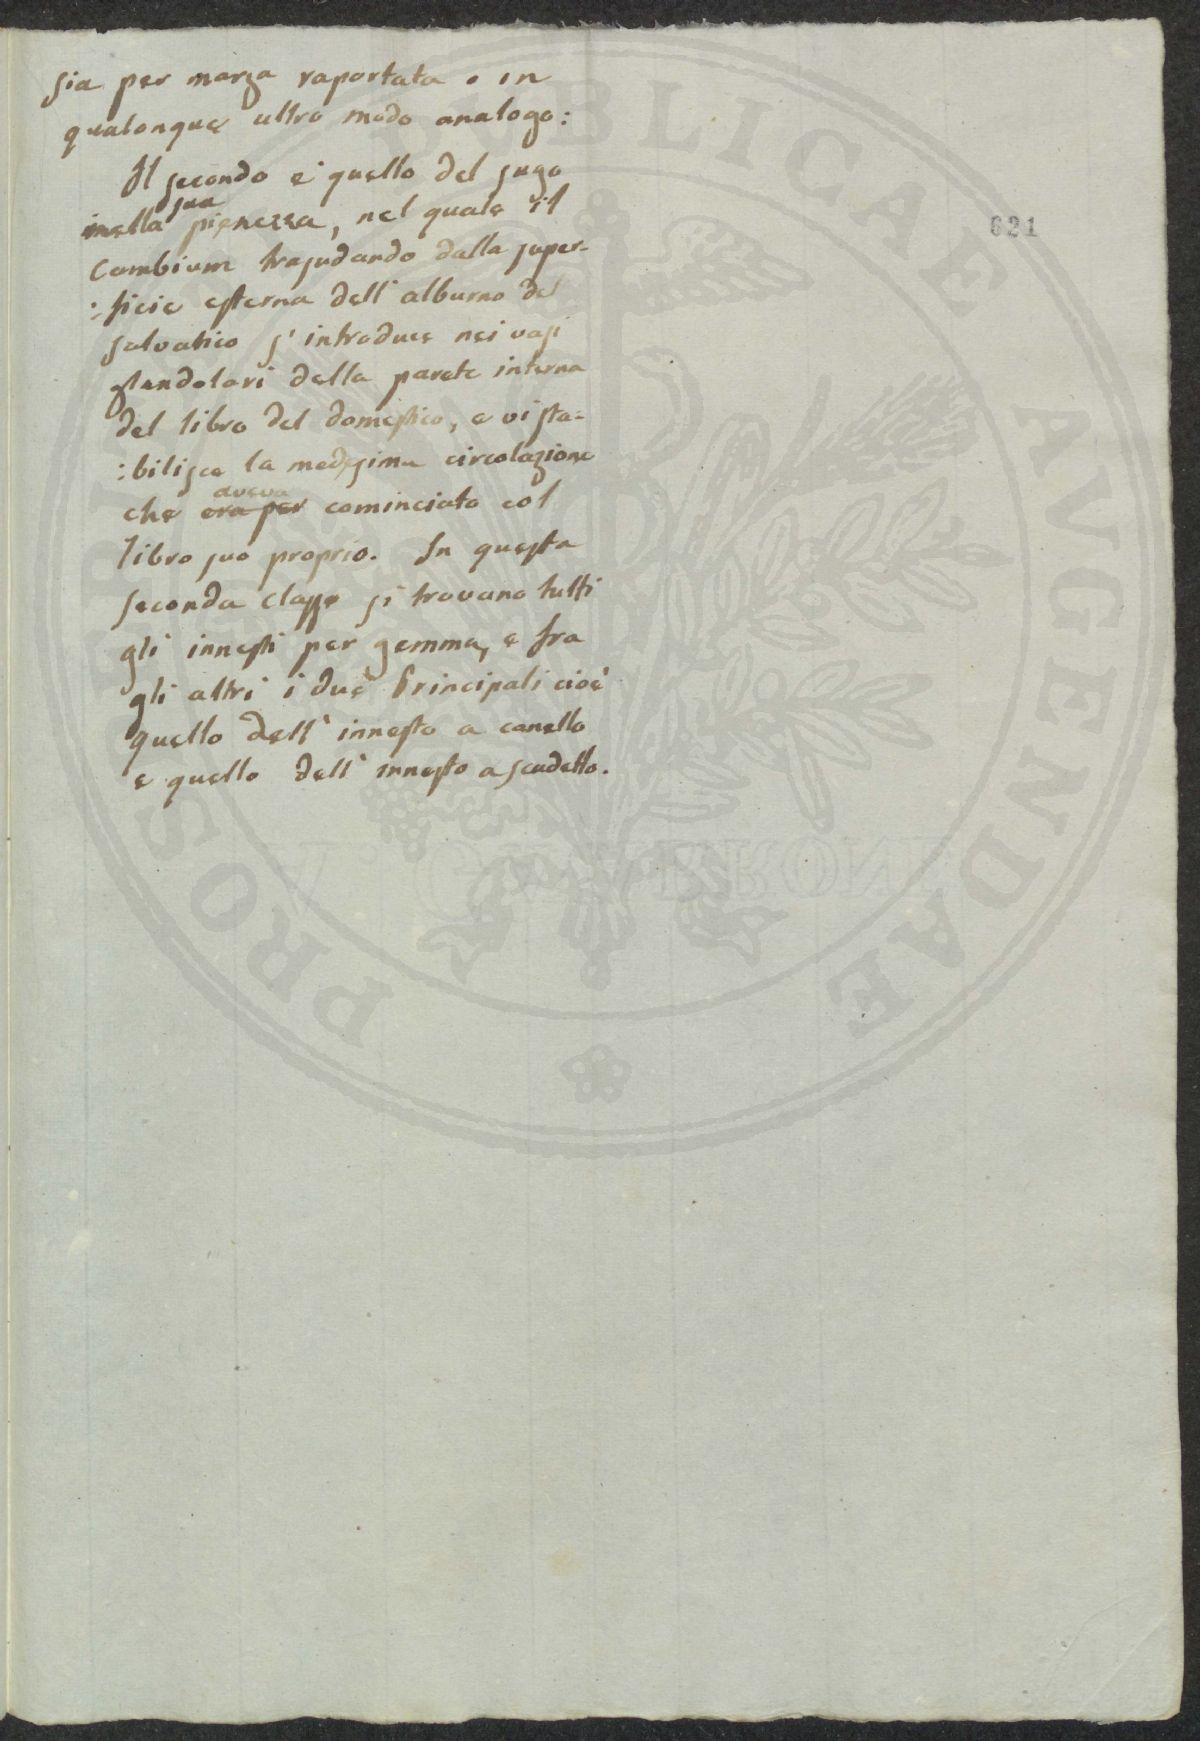 sia per marza raportata o in
qualonque altro modo analogo:
621
Il secondo e quello del sugo
nella sua pienezza, nel quale il
Cambium trasudando dalla super-
:ficie esterna dell' alburno del
salvatico s' introduce nei vasi
glandolari della parete interna
del libro del domestico, e vi sta=
:bilisce la medesima circolazione
che era per aveva cominciato col
libro suo proprio. In questa
seconda classe si trovano tutti
gli innesti per gemma, e fra
gli altri i due Principali cioè
quello dell' innesto a canello
e quello dell' innesto a scudetto.
PROS PUBLICAE AUGENDAE